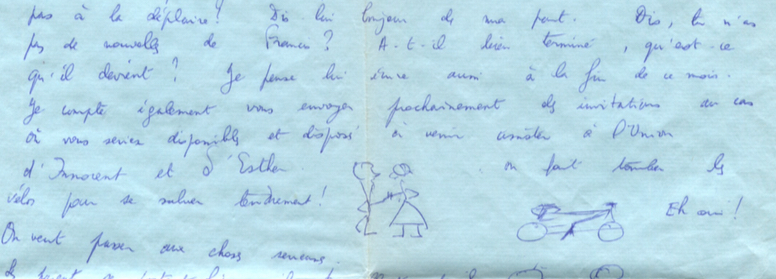 pas à la déplaire! Dis lui bonjour de ma part. Dis, tu n'as
pas de nouvelles de Franco? A-t-il bien terminé, qu'est-ce
qu'il devient? Je pense lui écrire aussi à la fin de ce mois.
Je compte également vous envoyer prochainement des invitations au cas
où vous seriez disponibles et disposés à venir assister à l'Union
d'Innocent et d'Esther. on fait tomber les
vélos pour se saluer tendrement! Eh oui!
On veut passer aux choses